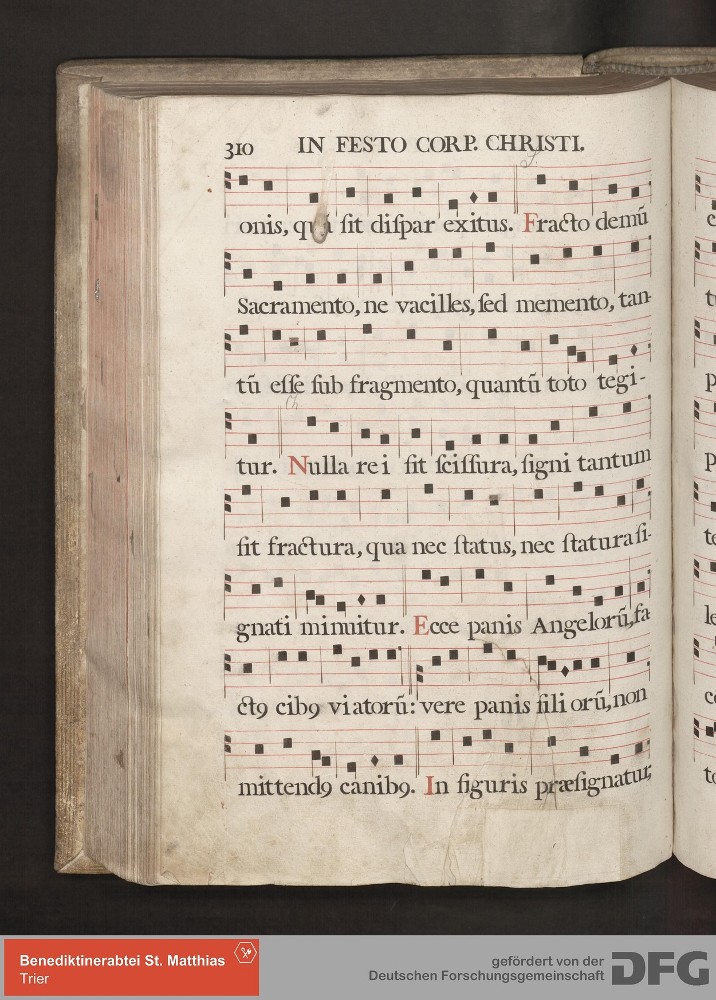 310 IN FESTO CORP. CHRISTI.
onis, quā ſit diſpar exitus. Fracto demū
Sacramento, ne vacilles, ſed memento, tan-
tū eſſe ſub fragmento, quantū toto tegi-
tur. Nulla rei ſit ſciſſura, ſigni tantum
ſit fractura, qua nec ſtatus, nec ſtatura ſi-
gnati minuitur. Ecce panis Angelorū, fa-
ctꝯ cibꝯ viatorū: vere panis filiorū, non
mittendꝯ canibꝯ. In figuris præſignatur,
Benediktinerabtei St. Matthias
Trier
gefördert von der
Deutschen Forschungsgemeinschaft
DFG